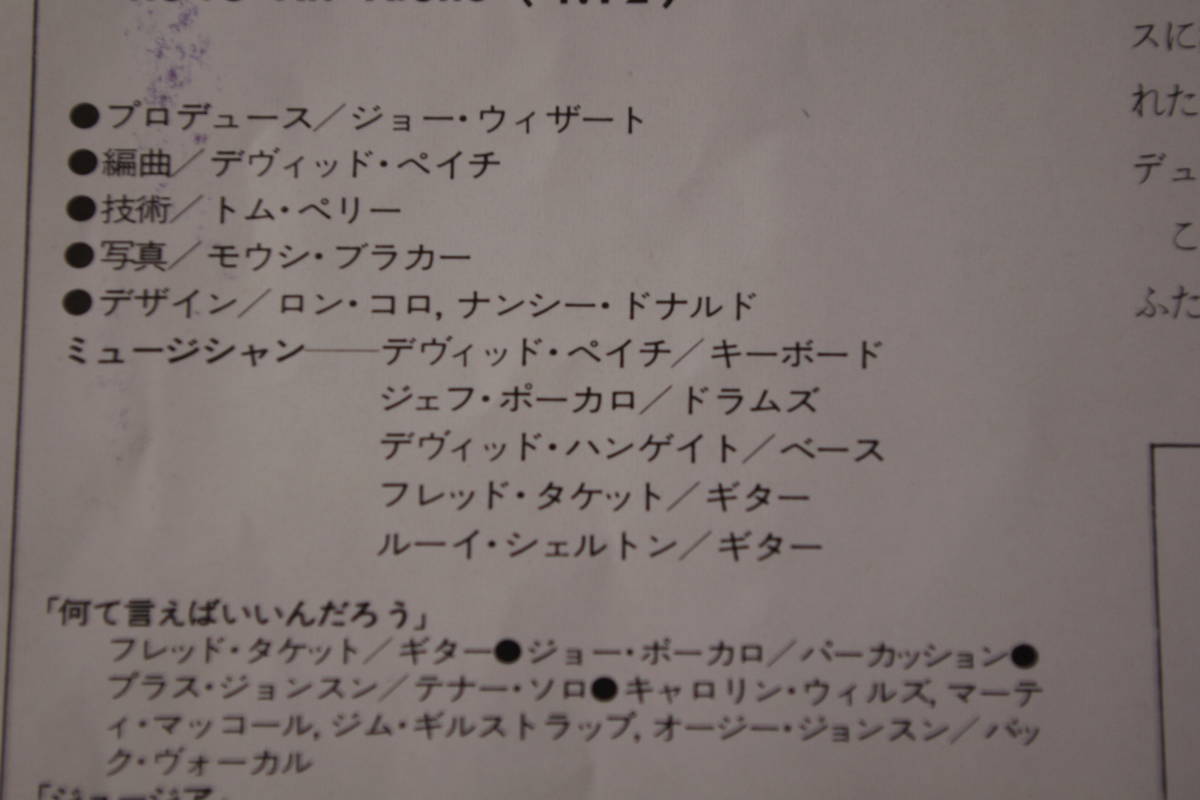 ●プロデュース／ジョー・ウィザート
●編曲／デヴィッド・ペイチ
●技術／トム・ペリー
●写真／モウシ・ブラカー
●デザイン／ロン・コロ, ナンシー・ドナルド
ミュージシャン――デヴィッド・ペイチ／キーボード
ジェフ・ポーカロ／ドラムズ
デヴィッド・ハンゲイト／ベース
フレッド・タケット／ギター
ルーイ・シェルトン／ギター
「何て言えばいいんだろう」
フレッド・タケット／ギター●ジョー・ポーカロ／パーカッション●
プラス・ジョンスン／テナー・ソロ●キャロリン・ウィルズ, マーテ
ィ・マッコール, ジム・ギルストラップ, オージー・ジョンスン／バッ
ク・ヴォーカル
「ジョージア」
スに
れた
デュ
こ
ふた